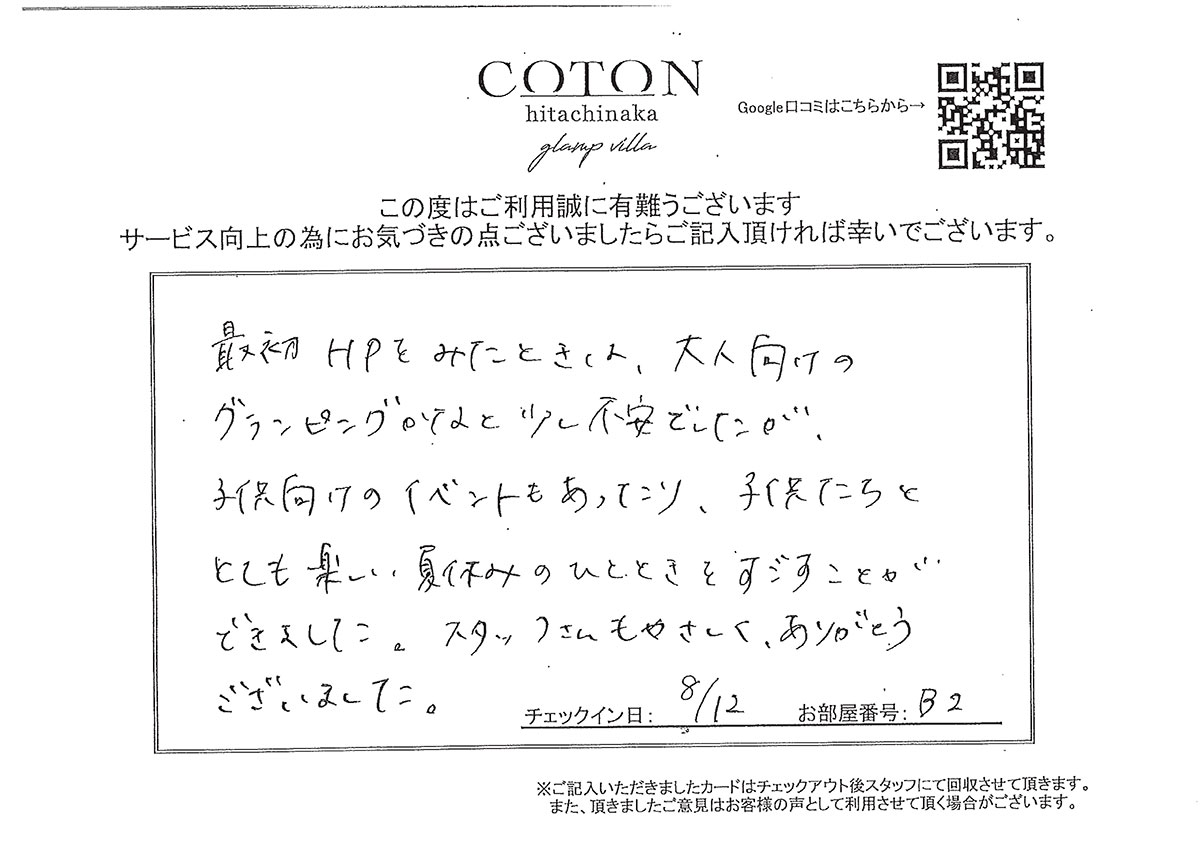 COTON
hitachinaka
glamp villa
Google口コミはこちらから→
この度はご利用誠に有難うございます
サービス向上の為にお気づきの点ございましたらご記入頂ければ幸いでございます。
最初HPをみたときは、大人向けの
グランピングかなと少し不安でしたが、
子供向けのイベントもあったり、子供たちと
とても楽しい夏休みのひとときをすごすことが
できました。スタッフさんもやさしく、ありがとう
ございました。
チェックイン日: 8/12 お部屋番号: B2
※ご記入いただきましたカードはチェックアウト後スタッフにて回収させて頂きます。
また、頂きましたご意見はお客様の声として利用させて頂く場合がございます。